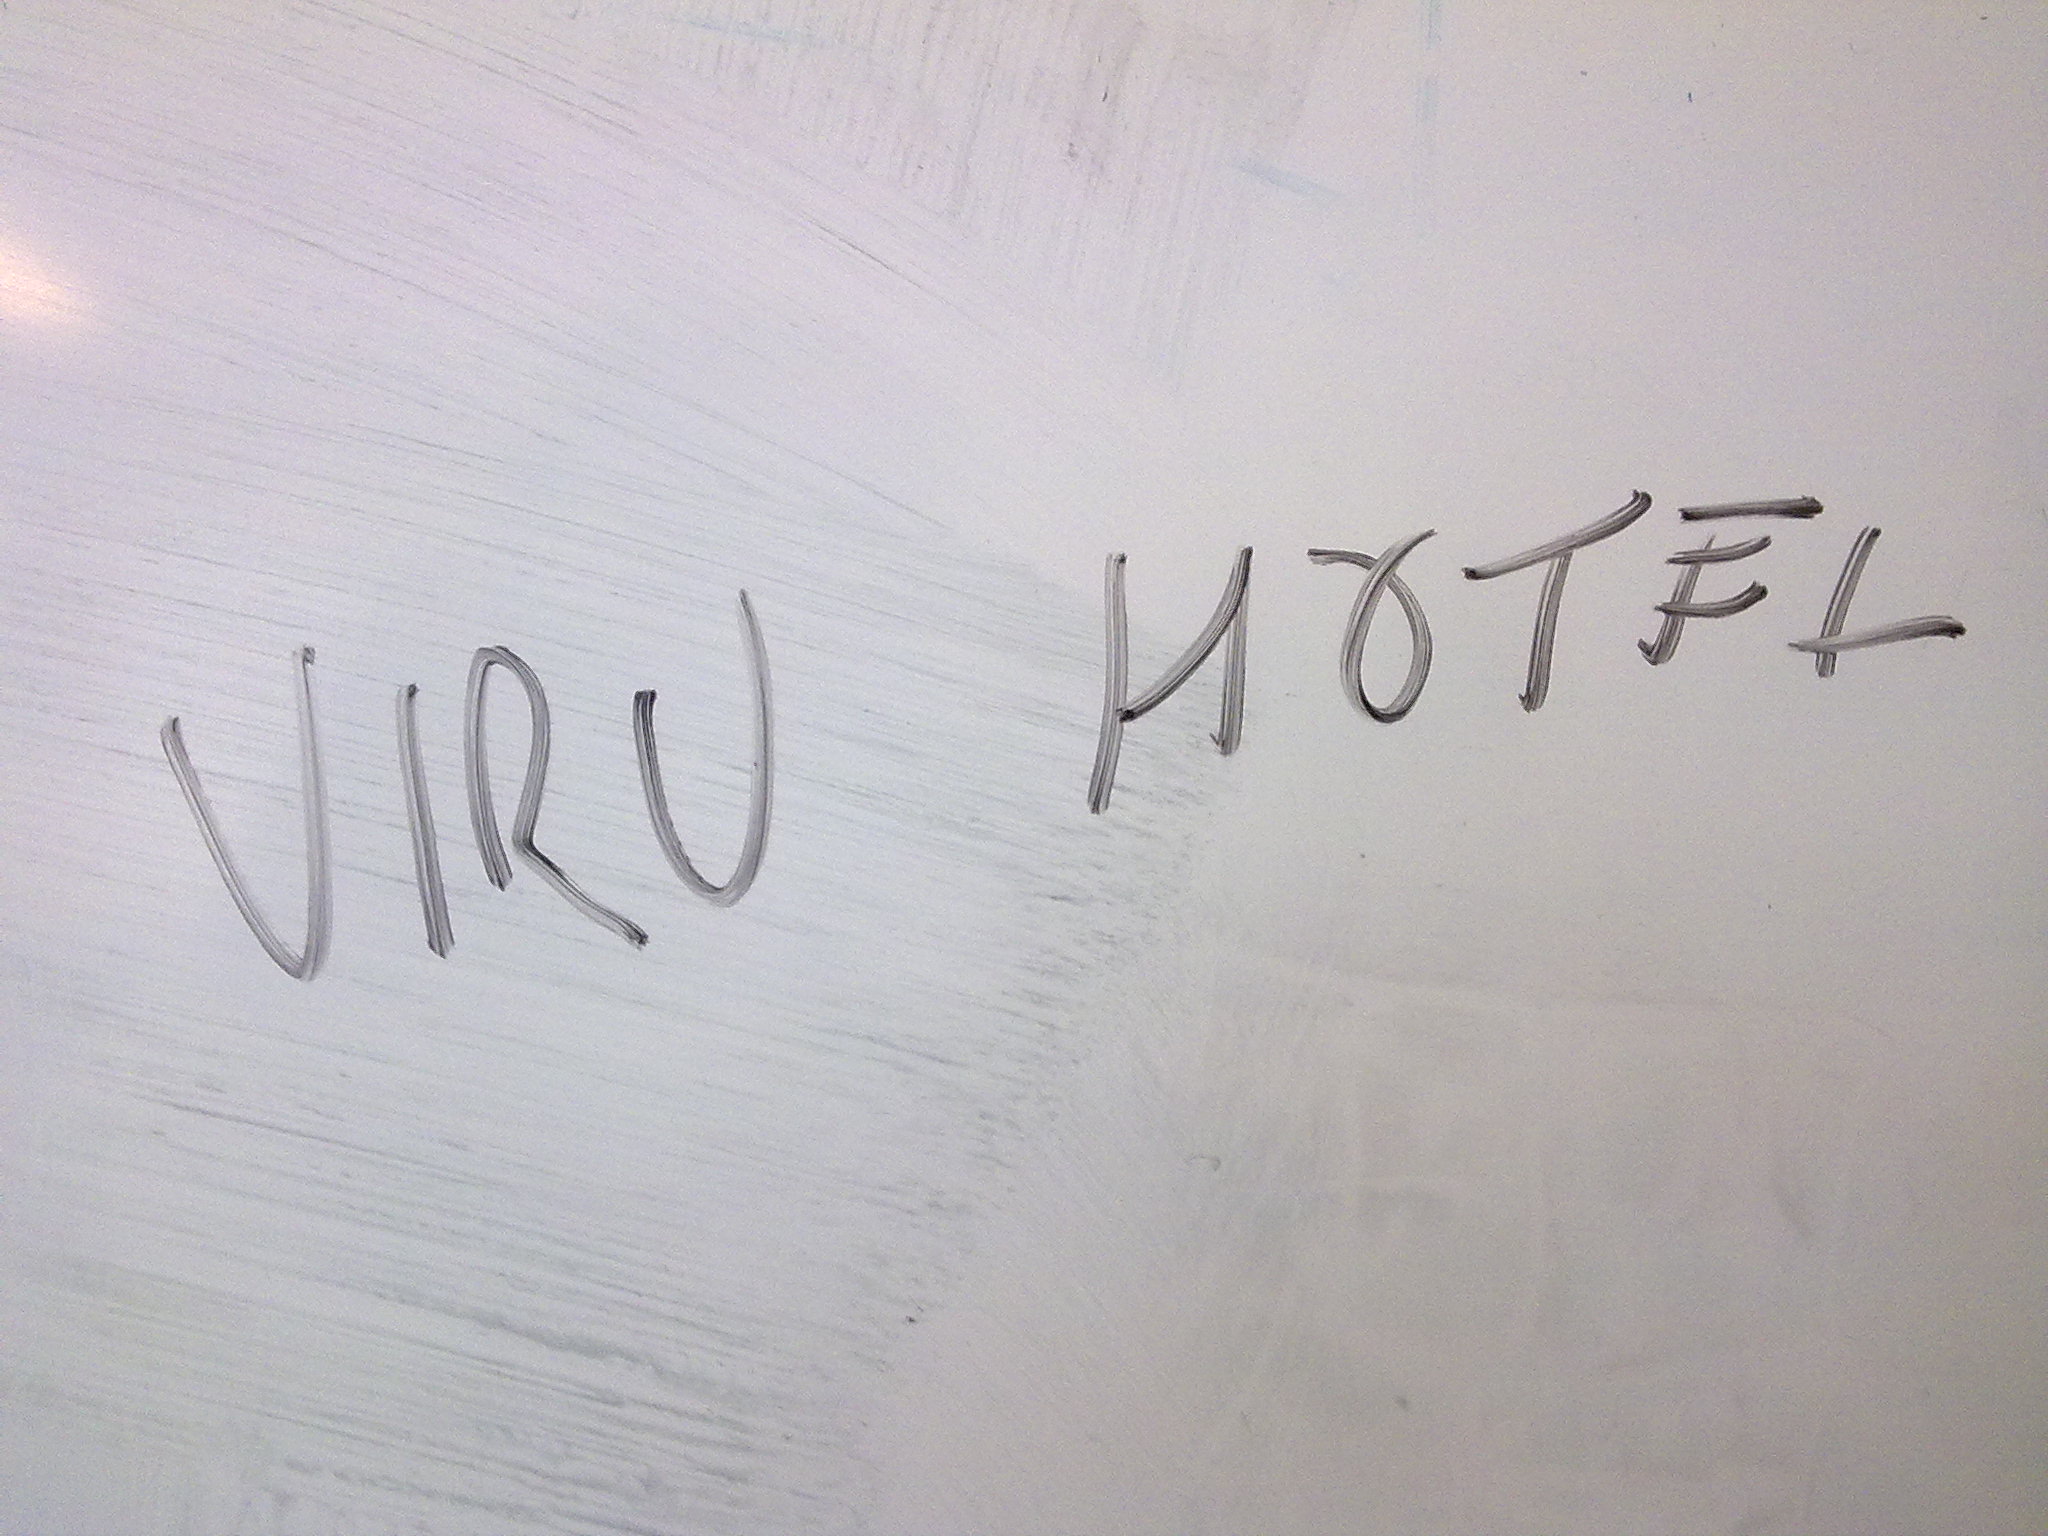 VIRU HOTEL